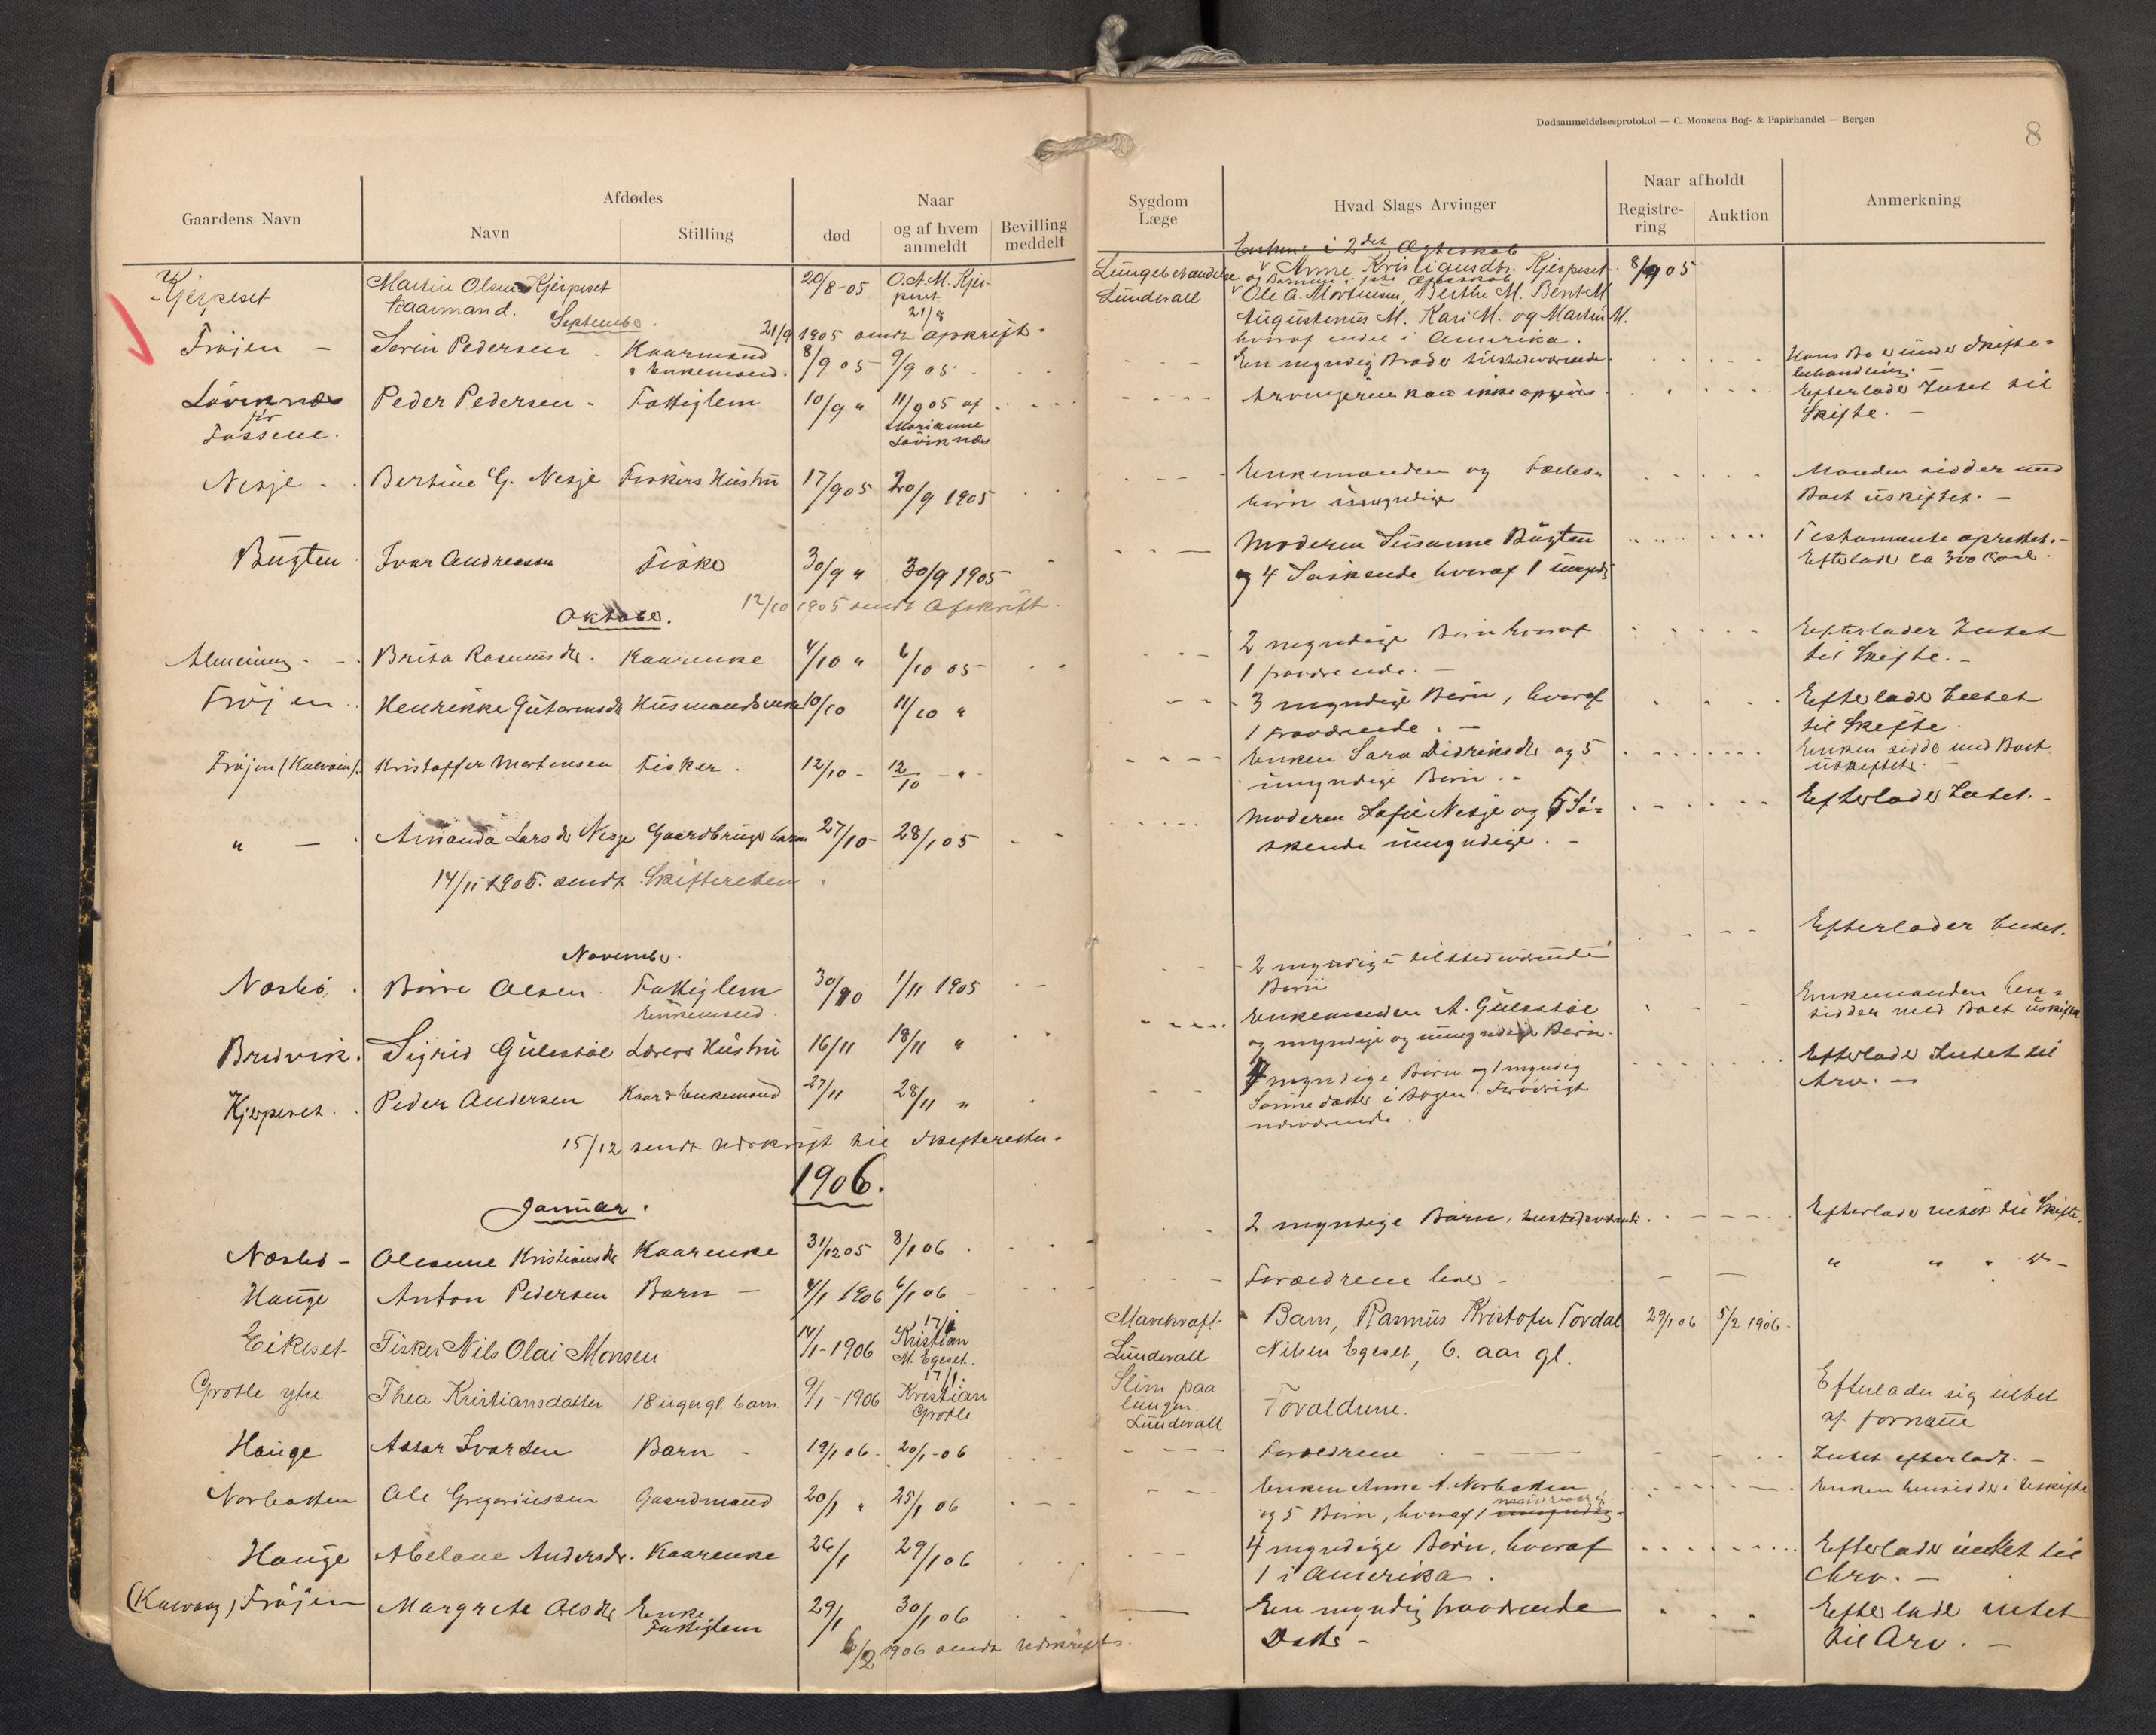 Dødsanmeldelsesprotokol — C. Monsens Bog- & Papirhandel — Bergen
8
Gaardens Navn
Afdødes
Navn
Stilling
Naar
død
og af hvem anmeldt
Bevilling meddelt
Sygdom Læge
Hvad Slags Arvinger
Naar afholdt
Registre-ring
Auktion
Anmerkning
Kjerpeset Martin Olsen Kjerpeset 20/8-05 O.A.M. Kjer- Lungebetændelse Enken i 2det Ægteskab
Kaarmand. peset 21/8 Lundevall Anne Kristiansdtr. Kjerpeset 8/9 05
og Børnene i 1ste Ægteskab
Ole A. Mortensen, Berthe M. Bent M
Augustinus M. Kari M. og Martin M.
hvoraf endel i Amerika.
September. 21/9 1905 sendt afskrift.
Frøjen — Sørin Pedersen Kaarmand 8/9 05 9/9 05 En myndig Broder tilstedeværende Hans Bo er under Skifte-
& Enkemand. behandling.
Løviknæs Peder Pedersen - Fattiglem 10/9 " 11/9 05 af Arvingerne kan ikke opgives Efterlader Intet til
for Marianne Skifte. —
Fossene. Løviknæs
Nesje Bertine G. Nesje Fiskers Hustru 17/9 05 20/9 1905 Enkemanden og Fælles- Manden sidder med
børn umyndige Boet uskiftet. —
Bugten Ivar Andreassen Fisker 30/9 " 30/9 1905 Moderen Susanne Bugten Testamente oprettet. -
og 4 Søskende, hvoraf 1 umyndig Efterlader ca 300 Kr
Oktober. 12/10 1905 sendt Afskrift.
Almenning Brita Rasmusdtr. Kaarenke 4/10 " 6/10 05 2 myndige Børn hvoraf Efterlader Intet
1 fraværende. — til Skifte. -
Frøjen Henrikke Gutormsdtr Husmandsenke 10/10 11/10 " 3 myndige Børn, hvoraf Efterlader Intet
1 fraværende. — til Skifte.
Frøjen (Kalvaag) Kristoffer Mortensen Fisker. 12/10 - 12/10 - " - Enken Sara Didriksdtr og 5 Enken sidder med Boet
umyndige Børn. - uskiftet.
" — Amanda Larsdtr Nesje Gaardbrugerbarn 27/10 - 28/1 05 Moderen Sofie Nesje og 5 Sø- Efterlader Intet. -
skende umyndige. -
14/11 1905. sendt Skifteretten
November.
Nosbø Børre Olsen Fattiglem 30/10 1/11 1905 2 myndige tilstedeværende Efterlader Intet.
Enkemand. Børn
Bredvik. Sigrid Gulestøl Lærers Hustru 16/11 18/11 " Enkemanden A. Gulestøl Enkemanden hen-
og myndige og umyndige Børn. sidder med Boet uskiftet
Kjerpeset Peder Andersen Kaar & Enkemand 27/11 28/11 " 4 myndige Børn og 1 myndig Efterlader Intet til
Sønnedatter i Bergen. Arv. —
15/12 sendt Udskrift til Skifteretten.
1906.
Januar.
Nosbø - Olesanne Kristiansdtr Kaarenke 31/12 05 8/1 06 2 myndige Børn, tilstedeværende Efterlader intet til Skifte.
Hauge Anton Pedersen Barn — 4/1 1906 6/1 06 Forældrene lever - " " "
Eikeset Fisker Nils Olai Monsen 14/1-1906 17/1 Kristian Marvkraft Barn, Rasmus Kristofer Tordal 29/1 06 5/2 1906
M. Egeset. Lundevall Nilsen Egeset, 6. aar gl.
Grotle ytre Thea Kristiansdatter 18 uger gl. barn 9/1-1906 17/1. Kristian Slim paa Forældrene. Efterlader sig intet
Grotle lungen. Lundevall af formue
Hauge Aslar Ivarsen Barn - 19/1 06 - 20/1-06 Forældrene Intet efterladt. —
Norbotten Ole Gregoriussen Gaardmand 20/1 " 25/1 06 Enken Anna A. Norbotten Enken hensidder i Uskifte
og 5 Børn, hvoraf 1 umyndig
Hauge Abelone Andersdr. Kaarenke 26/1 29/1 06 4 myndige Børn, hvoraf Efterlader intet til
1 i Amerika. Arv. —
(Kalvaag) Frøjen Margrete Olsdtr Enke 29/1 30/1 06 En myndig fraværende Efterlader intet
Fattiglem Datter - til Arv. —
6/2 1906 sendt Udskrift.